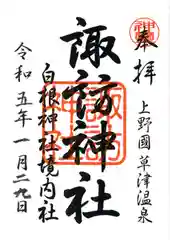 奉拝
上野國草津温泉
諏訪神社
白根神社境内社
令和五年一月二九日